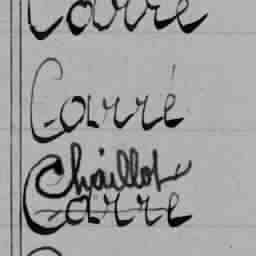 Carré
Carré
Chaillot
Carre